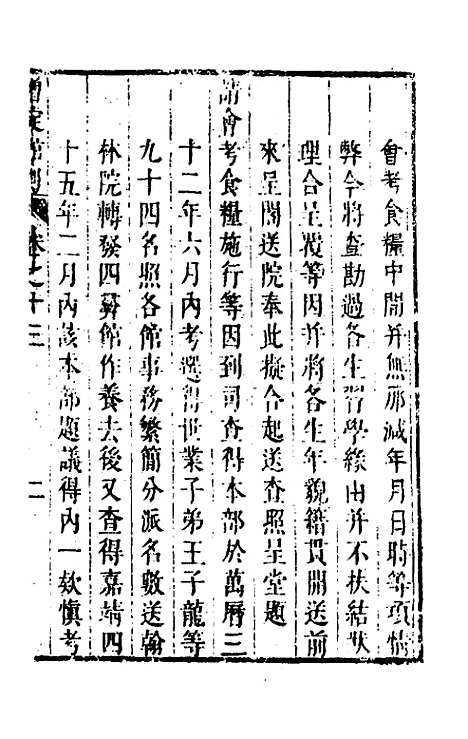 會考食糧中間并無那減年月日時等項情
弊今將查勘過各生習學緣由并不扶結狀
理合呈覆等因并將各生年貌籍貫開送前
來呈閣送院奉此擬合起送查照呈堂題
請會考食糧施行等因到司查得本部於萬曆三
十二年六月內考選得世業子弟王子龍等
九十四名照各館事務繁簡分派名數送翰
林院轉發四彝館作養去後又查得嘉靖四
十五年二月內該本部題議得內一欵慎考
館則 卷之十三 二